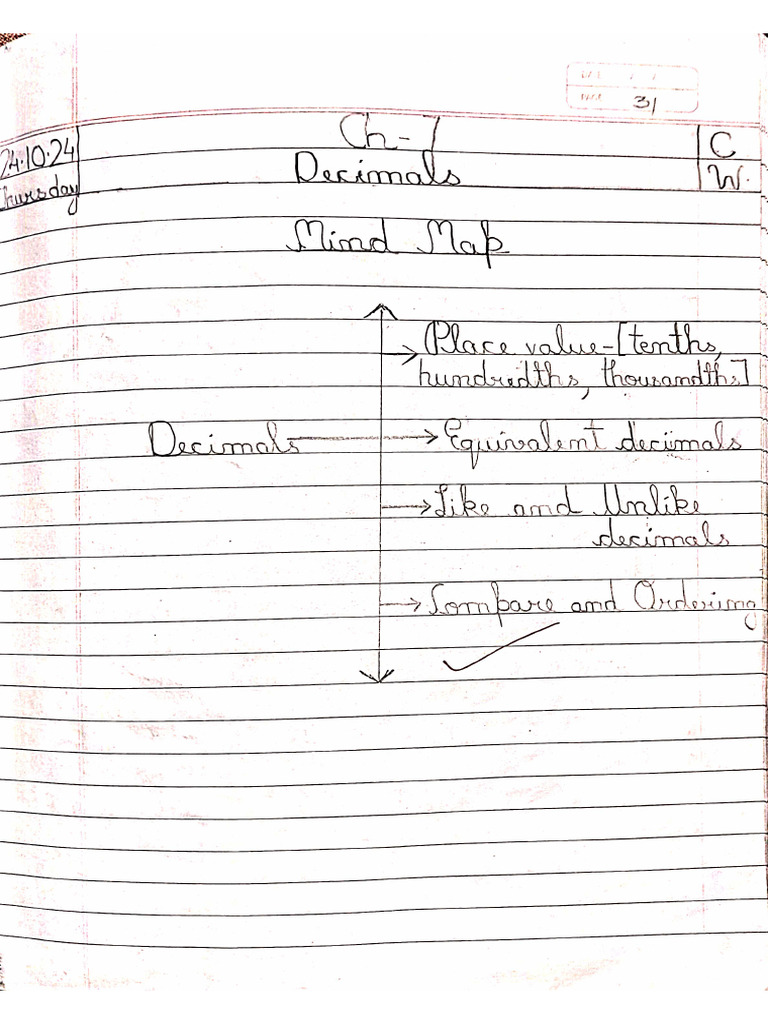 DATE / /
PAGE 31
Ch-7
24.10.24
C
Decimals
Thursday
W.
Mind Map
Place value-[tenths,
hundredths, thousandths]
Decimals
Equivalent decimals
Like and Unlike
decimals
Compare and Ordering